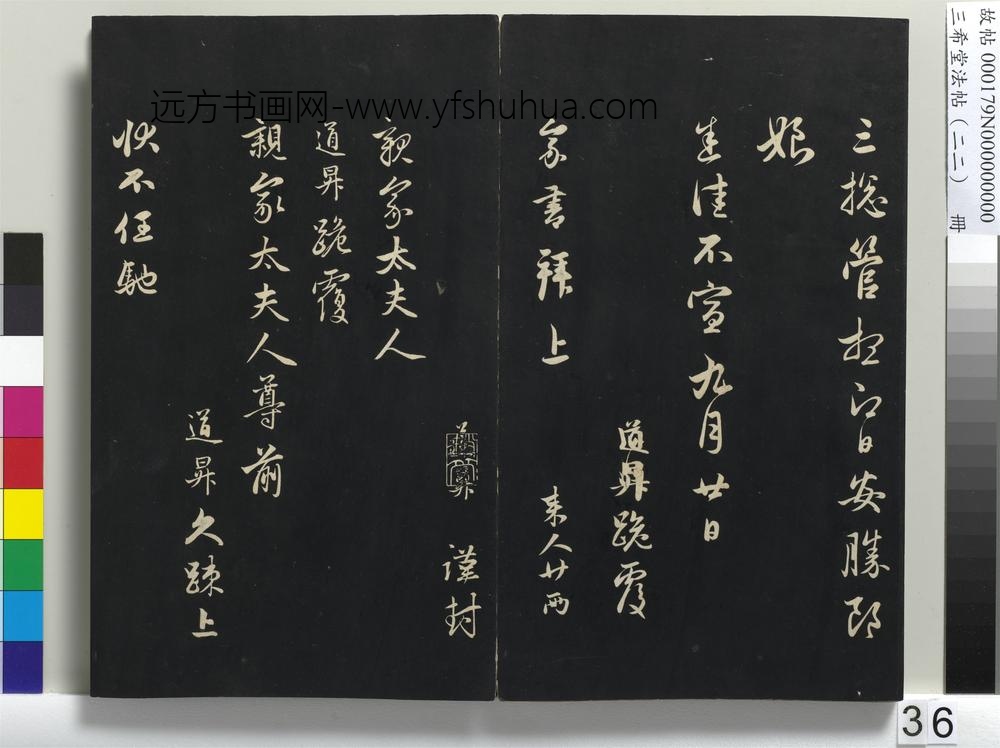 故帖 000179N000000000
三希堂法帖（二二） 冊
三揔管想即日安勝郎
娘
悉佳不宣九月廿日
道昇跪覆
家書拜上 來人廿兩
謹封
親家太夫人
道昇跪覆
親家太夫人尊前
道昇久疎上
狀不任馳
远方书画网-www.yfshuhua.com
36